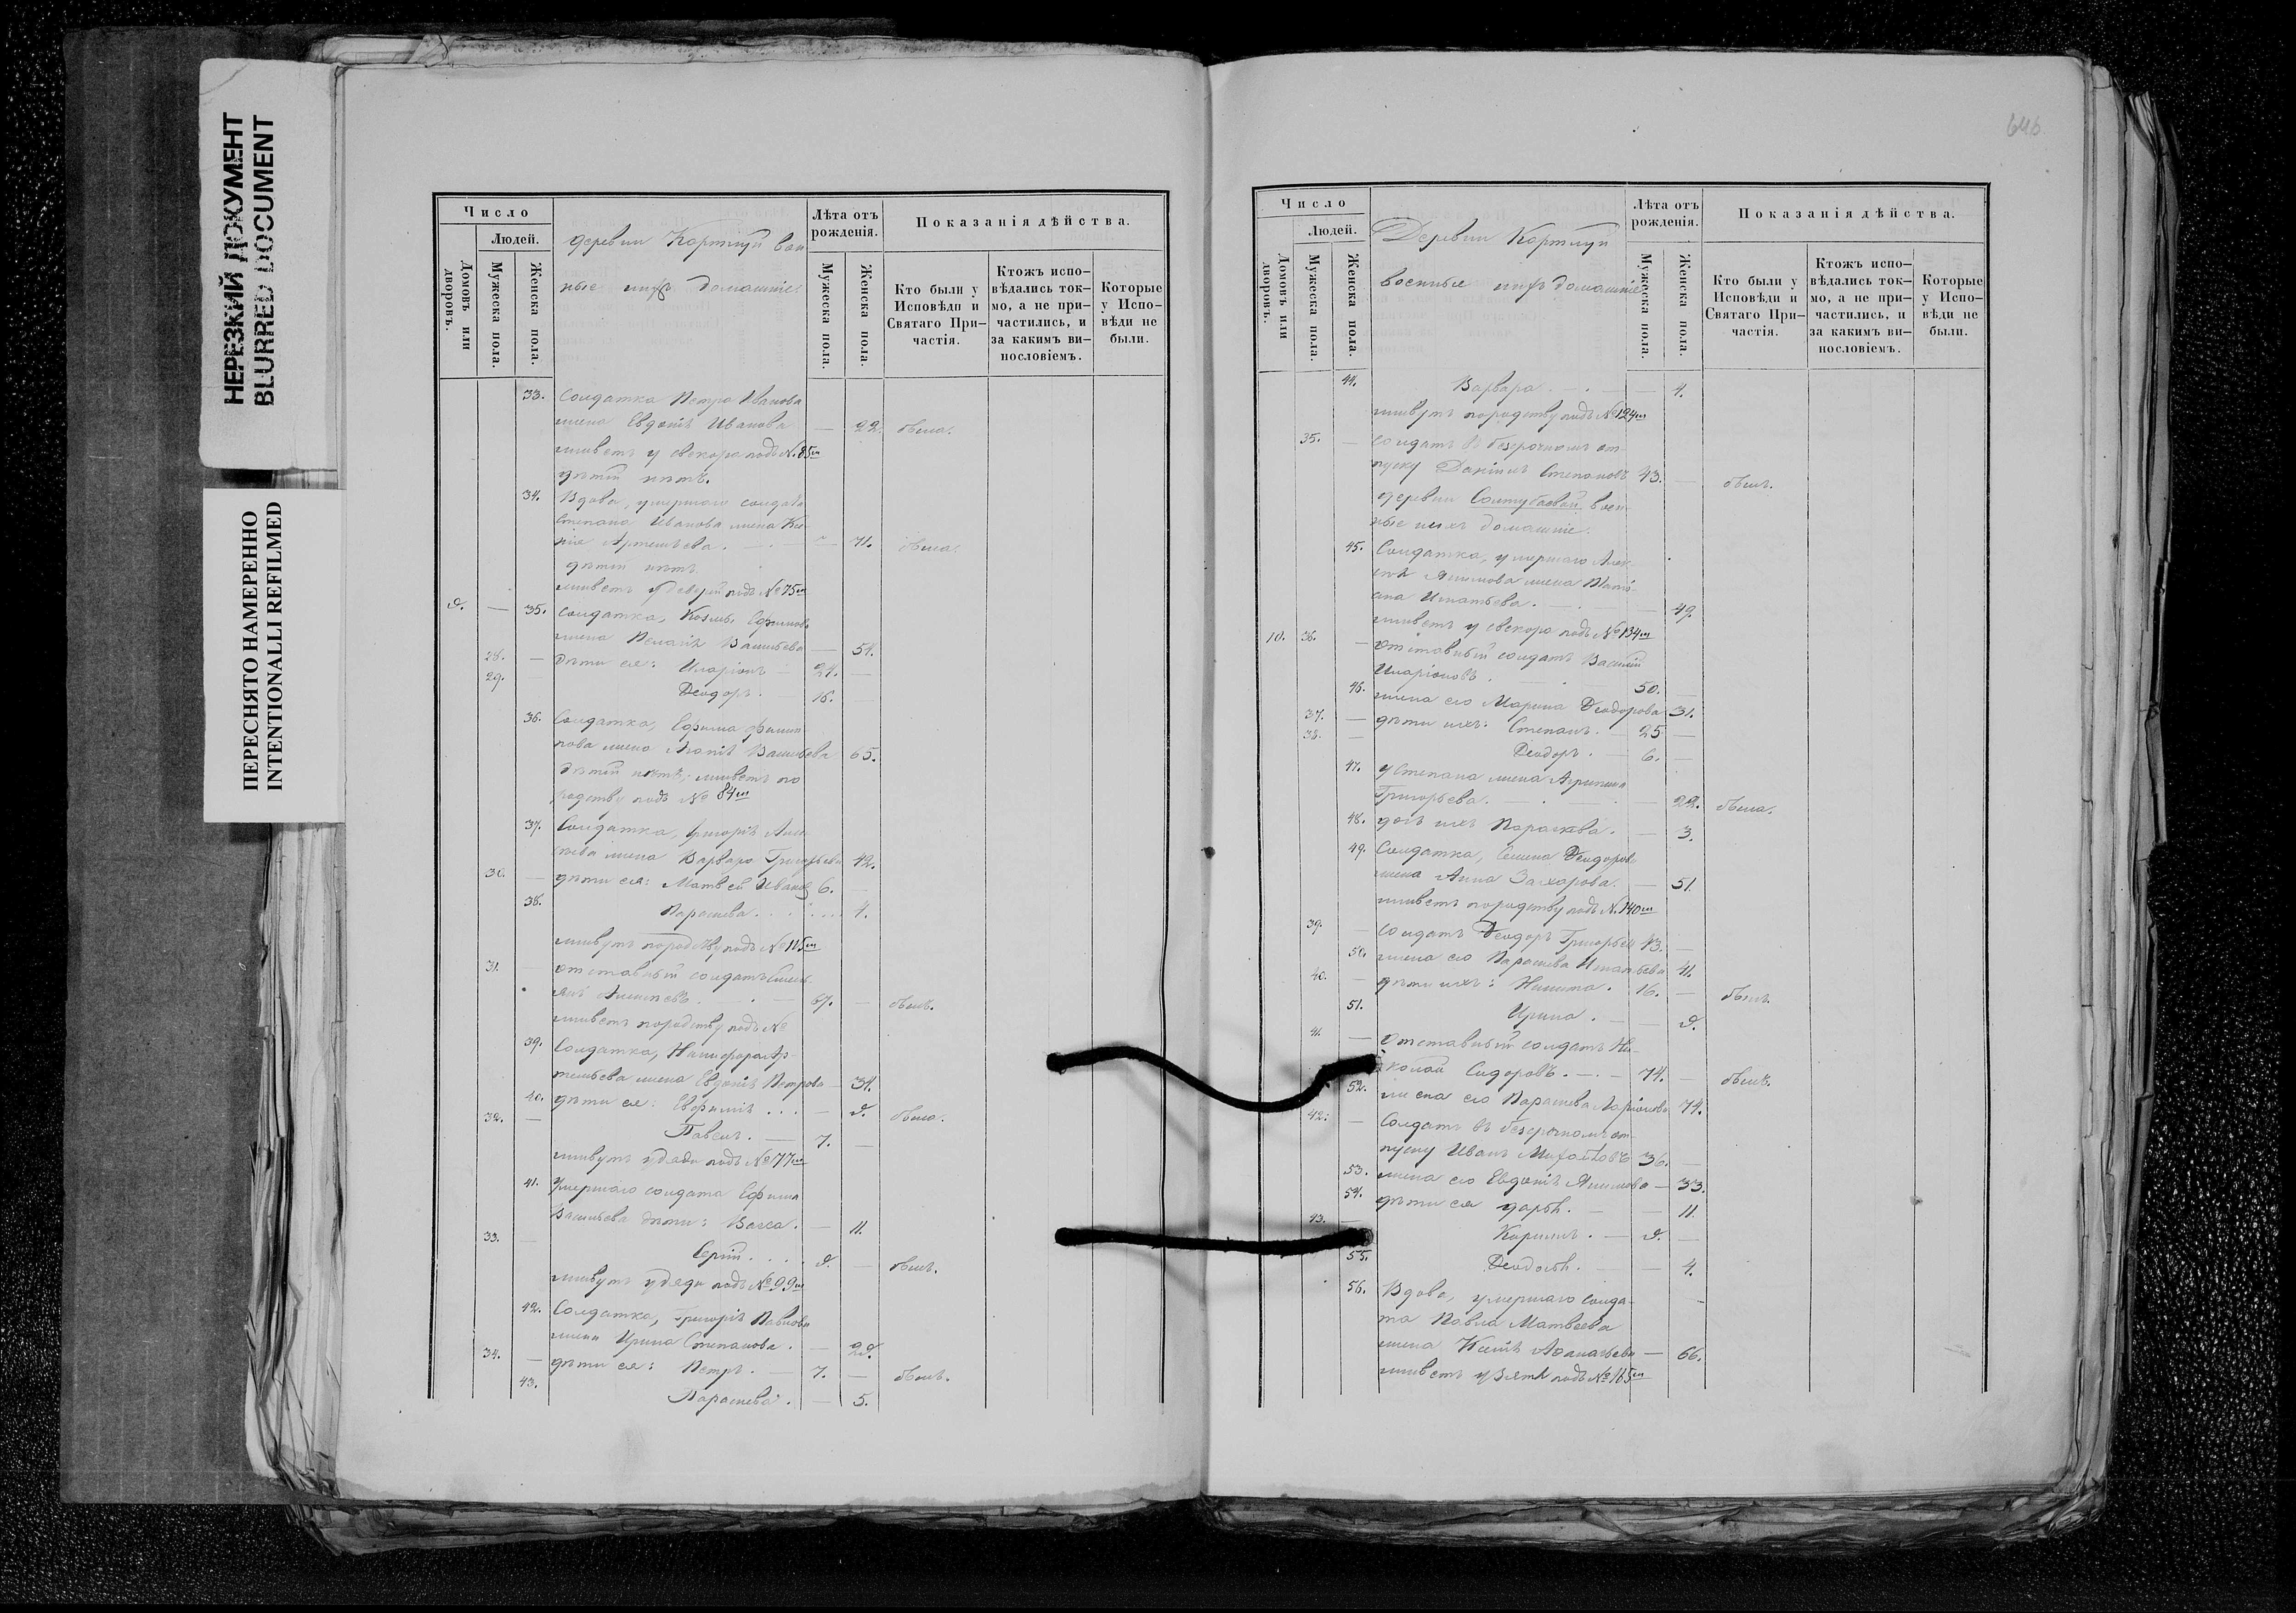 НЕРЕЗКИЙ ДОКУМЕНТ
BLURRED DOCUMENT
ПЕРЕСНЯТО НАМЕРЕННО
INTENTIONALLI REFILMED
Число
Людей.
Домовъ или дворовъ.
Мужеска пола.
Женска пола.
деревни Картлуй воен
ные ихъ домашніе
Лѣта отъ рожденія.
Мужеска пола.
Женска пола.
Показанія дѣйства.
Кто были у Исповѣди и Святаго При-частія.
Ктожъ испо-вѣдались ток-мо, а не при-частились, и за какимъ ви-нословіемъ.
Которые у Испо-вѣди не были.
33. Солдатка Петра Иванова
жена Евдокія Иванова — 22. была.
живетъ у свекора подъ №85м
дѣтей нѣтъ.
34. Вдова, умершаго солдата
Степана Иванова жена Ксе-
нія Артемьева. — 71. была.
дѣтей нѣтъ
живетъ у деверя подъ №75м
9. — 35. Солдатка, Козьмы Ефимова
жена Пелагія Васильева — 51.
28. — дѣти ея: Иларіонъ — 21. —
29. Ѳеодоръ. — 16. —
36. Солдатка, Ефима Филип-
пова жена Агапія Васильева 65.
дѣтей нѣтъ, живетъ по
родству подъ № 84м
37. Солдатка, Григорія Алек-
сѣева жена Варвара Григорьева 42.
30. — дѣти ея: Матвей Ивановъ 6. —
38. Параскева.... 4.
живутъ породству подъ №115м
31. — отставный солдатъ
Алексѣевъ. — 67. — былъ.
живетъ породству подъ №
39. Солдатка, Никифора Ар-
темьева жена Евдокія Петрова — 34.
40. дѣти ея: Евфимія ... — 9. была.
32. — Павелъ. — 7. —
живутъ у дяди подъ №77м
41. Умершаго солдата Ефима
Васильева дѣти: Васса. — 11.
33. — Сергій.... 9. — былъ.
живутъ у дяди подъ №99м
42. Солдатка, Григорія Павлова
жена Ирина Степанова. — 29.
34. — дѣти ея: Петръ. — 7. — былъ.
43. Параскева. — 5.
646
Число
Людей.
Домовъ или дворовъ.
Мужеска пола.
Женска пола.
Деревни Картлуй
военные ихъ домашніе
Лѣта отъ рожденія.
Мужеска пола.
Женска пола.
Показанія дѣйства.
Кто были у Исповѣди и Святаго При-частія.
Ктожъ испо-вѣдались ток-мо, а не при-частились, и за какимъ ви-нословіемъ.
Которые у Испо-вѣди не были.
44. Варвара. — 4.
живутъ породству подъ №124м
35. — солдатъ въ безсрочномъ от-
пуску Даніилъ Степановъ 43. — былъ.
деревни Салтубаевой воен-
ные ихъ домашніе.
45. Солдатка, умершаго Алек-
сѣя Якимова жена Тать-
яна Игнатьева. — 49.
живетъ у свекора подъ №134м
10. 36. — отставный солдатъ Василій
Иларіоновъ. — 50. —
46. жена его Марина Ѳеодорова 31.
37. — дѣти ихъ: Степанъ. — 25 —
38. — Ѳеодоръ. — 6. —
47. у Степана жена Агрипина
Григорьева. — 22. была.
48. дочь ихъ Параскева. — 3.
49. Солдатка, Семена Ѳеодорова
жена Анна Захарова. — 51.
живетъ породству подъ №140м
39. — солдатъ Ѳеодоръ Григорьевъ 43. —
50. жена его Параскева Игнатьева 41.
40. — дѣти ихъ: Никита. 16. — былъ.
51. Ирина. — 9.
41. — отставный солдатъ Ни-
колай Сидоровъ. — 74. — былъ.
52. жена его Параскева Ларіонова 74.
42. — Солдатъ въ безсрочномъ от-
пуску Иванъ Михайловъ 36. —
53. жена его Евдокія Якимова — 33.
54. дѣти ея Дарья. — 11.
43. — Кирилъ. — 9. —
55. Ѳеодосья. — 4.
56. Вдова, умершаго солда-
та Павла Матвѣева
жена Ксенія Аѳанасьева — 66.
живетъ у зятя подъ №165м